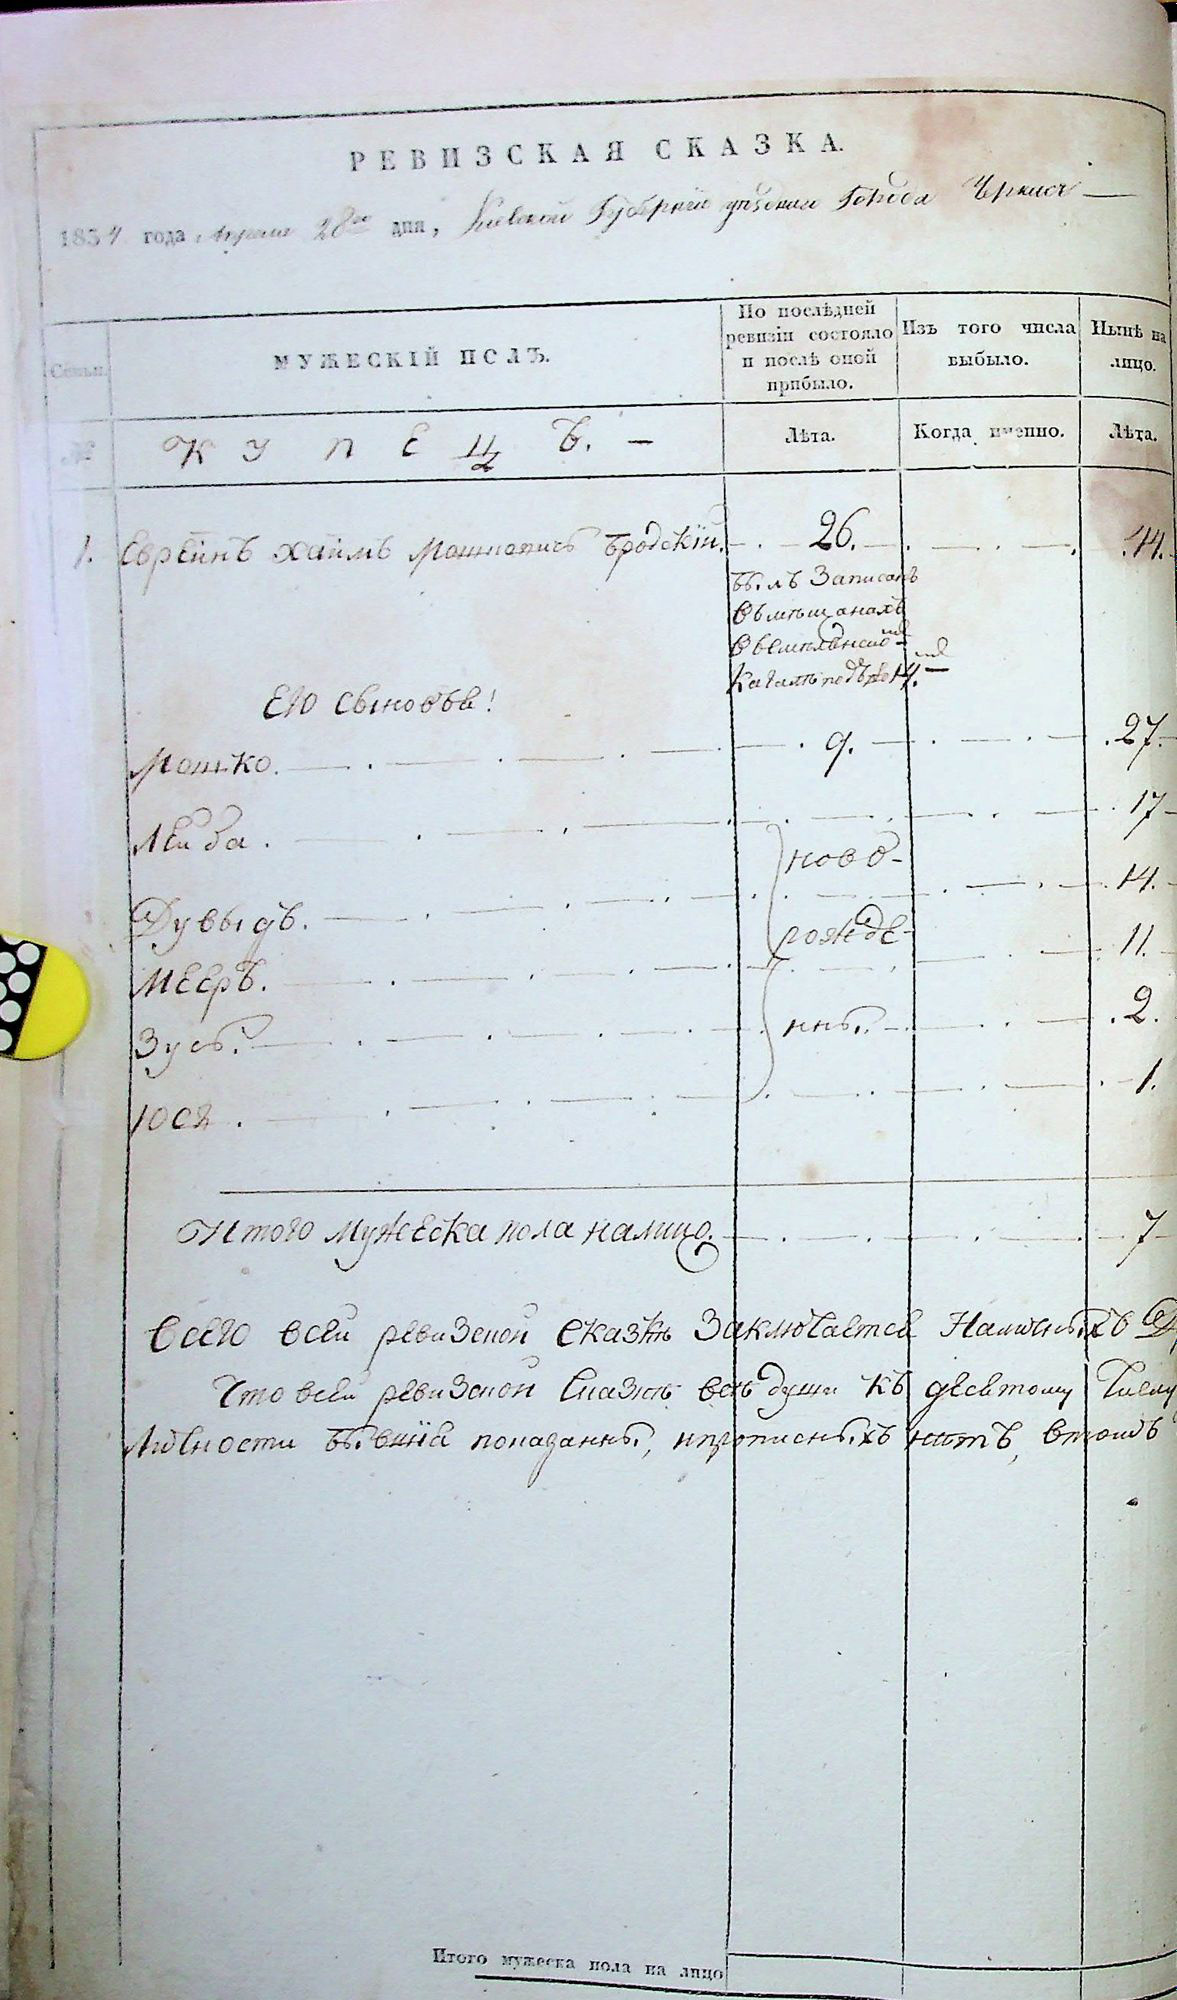 РЕВИЗСКАЯ СКАЗКА.
1854 года Апреля 28го дня, Киевской Губернии уѣзднаго Города Черкасъ
Семьи
МУЖЕСКІЙ ПОЛЪ.
По послѣдней ревизіи состояло и послѣ оной прибыло.
Изъ того числа выбыло.
Нынѣ на лицо.
№
КУПЕЦЪ.
Лѣта.
Когда именно.
Лѣта.
1. Евреинъ Хаимъ Мошковичъ Бродскій. 26. 44.
Былъ Записанъ
въ мѣщанахъ
Кагалѣ подъ № 14.
Его Сыновья:
Мошко. 9. 27.
Лейба. 17
ново-
Дувыдъ. 14.
рожде-
Мееръ. 11.
Зусь. 2.
нны.
Юся. 1.
Итого мужеска пола налицо. 7
Всего всей ревизской сказкѣ Заключается Наличныхъ
Что всей ревизской Сказкѣ всѣ души къ десятому
бывшія показаны, и прописныхъ нѣтъ, втомъ
Итого мужеска пола на лицо